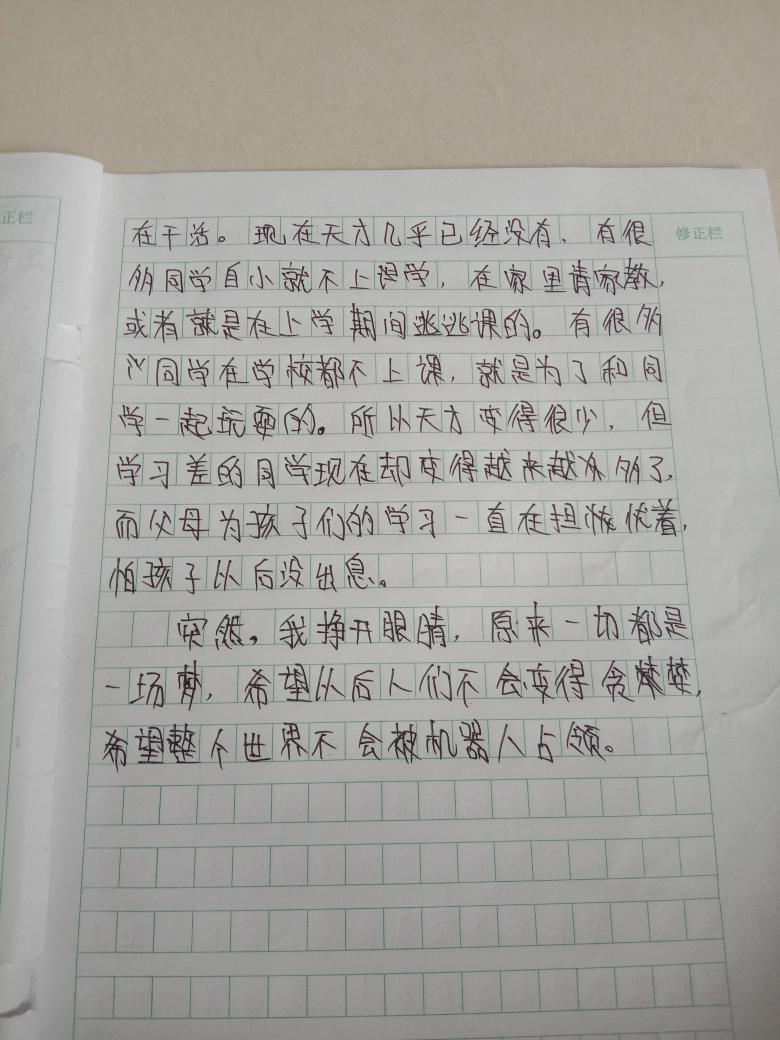 正栏
修正栏
在干活。现在天才几乎已经没有，有很
多同学自小就不上课学，在家里请家教，
或者就是在上学期间逃逃课的。有很多
同学在学校都不上课，就是为了和同
学一起玩耍的。所以天才变得很少，但
学习差的同学现在却变得越来越多了，
而父母为孩子们的学习一直在担忧着，
怕孩子以后没出息。
突然，我挣开眼睛，原来一切都是
一场梦，希望以后人们不会变得贪婪，
希望整个世界不会被机器人占领。